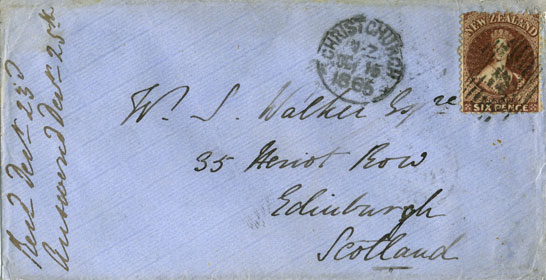 Recd Decr 23d
Answered Decr 25th
CHRISTCHURCH
N·Z
1865
NEW ZEALAND
SIX PENCE
W. S. Walker Esqre
35 Heriot Row
Edinburgh
Scotland